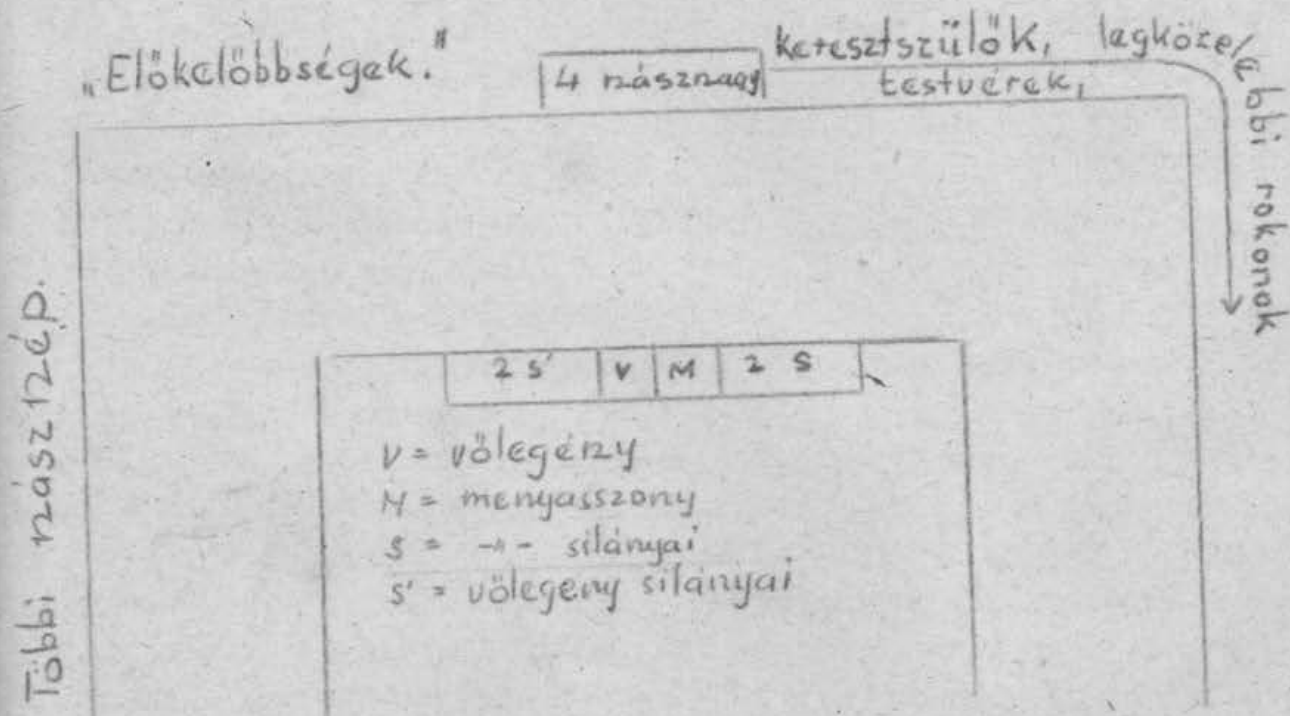 „Előkelőbbségek."
4 násznagy
keresztszülők, legközelebbi rokonok
testvérek,
Többi násznép.
2 S' V M 2 S
V = völegény
M = menyasszony
S = -〃- silányai
S' = völegeny silányai